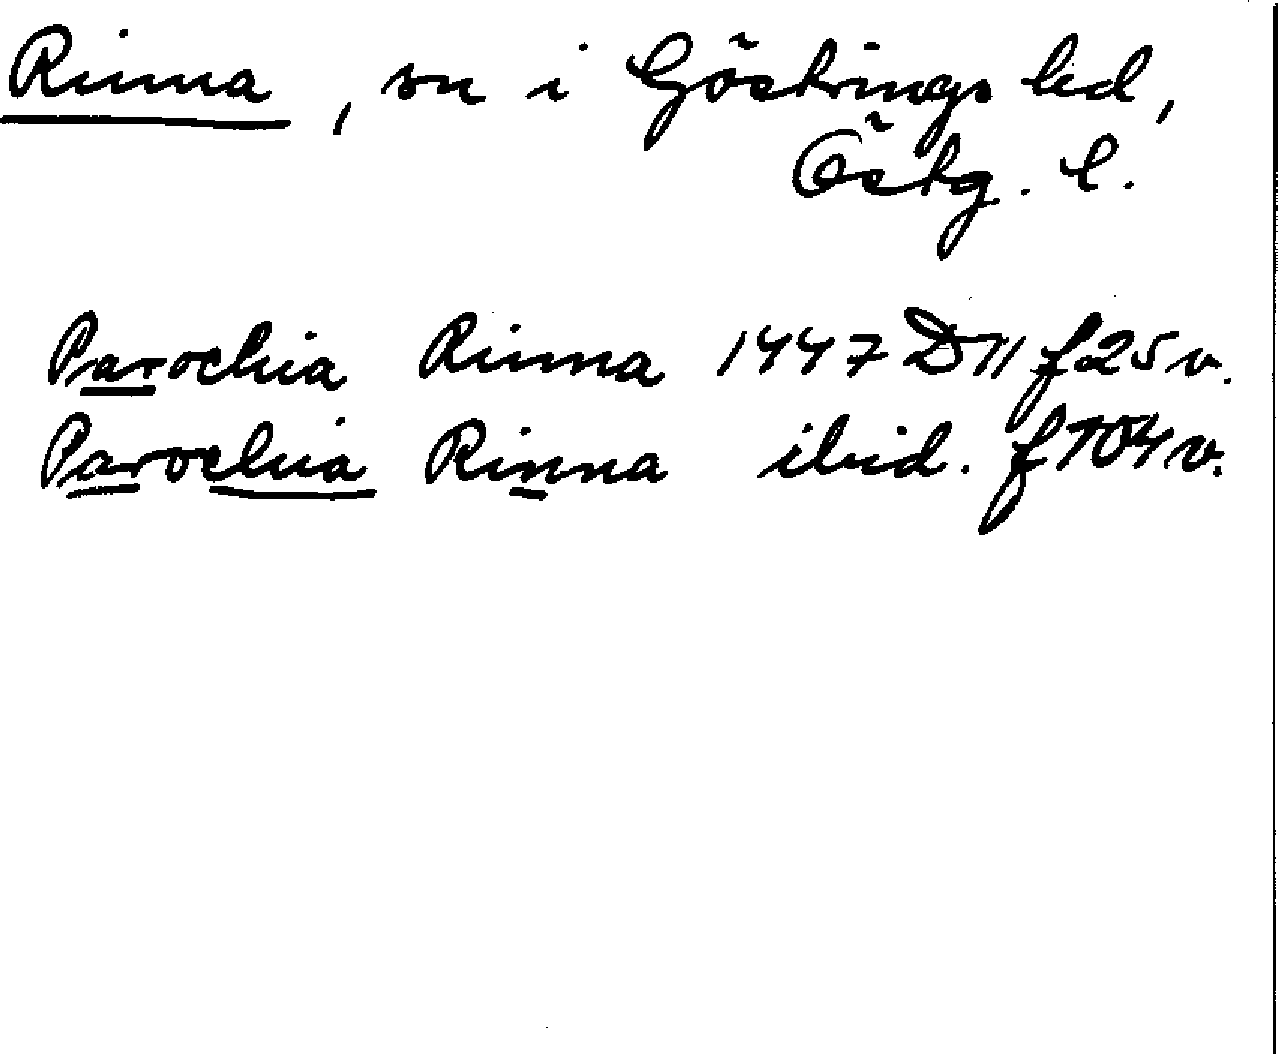 Rinna, sn i Göstrings hd,
Östg. l.
Parochia Rinna 1447 D 11 f 25 v.
Parochia Rinna ibid. f 104 v.